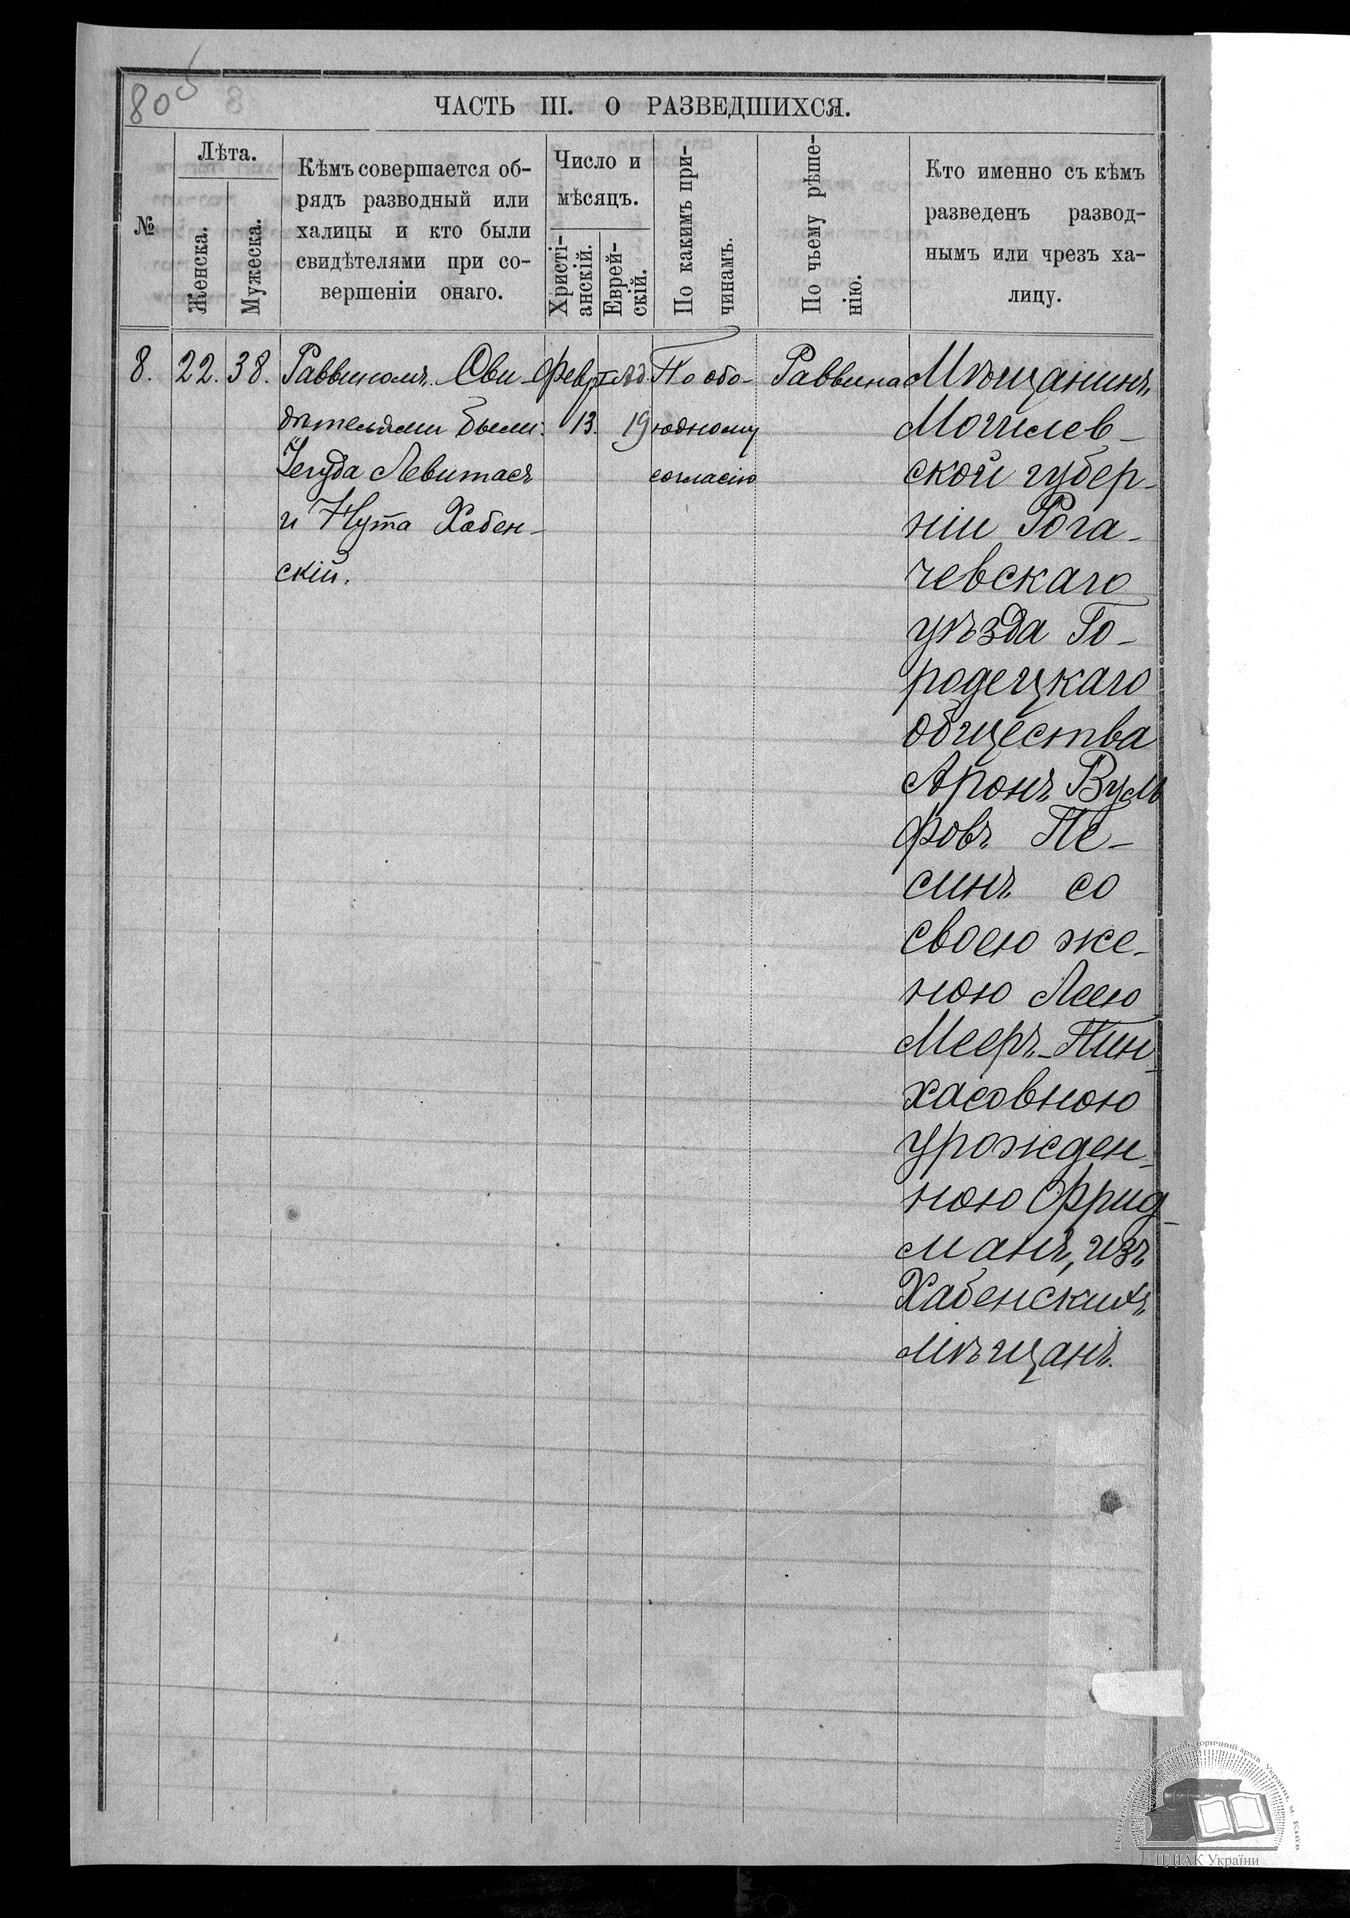 80
ЧАСТЬ III. О РАЗВЕДШИХСЯ.
№
Лѣта.
Женска.
Мужеска.
Кѣмъ совершается об-
рядъ разводный или
халицы и кто были
свидѣтелями при со-
вершеніи онаго.
Число и
мѣсяцъ.
Христі-
анскій.
Еврей-
скій.
По какимъ при-
чинамъ.
По чьему рѣше-
нію.
Кто именно съ кѣмъ
разведенъ развод-
нымъ или чрезъ ха-
лицу.
8.
22.
38.
Раввиномъ. Сви-
дѣтелями были:
Іегуда Левитасъ
и Нута Хабен-
скій.
Февр.
13.
19
По обо-
юдному
согласію
Раввина
Мѣщанинъ
Могилев-
ской губер-
ніи Рога-
чевскаго
уѣзда Го-
родецкаго
общества
Аронъ Вуль
фовъ Пе-
синъ со
своею же-
ною Леею
Мееръ-Пин-
хасовною
урожден-
ною Фрид-
манъ, изъ
Хабенскихъ
мѣщанъ.
ЦДІАК України